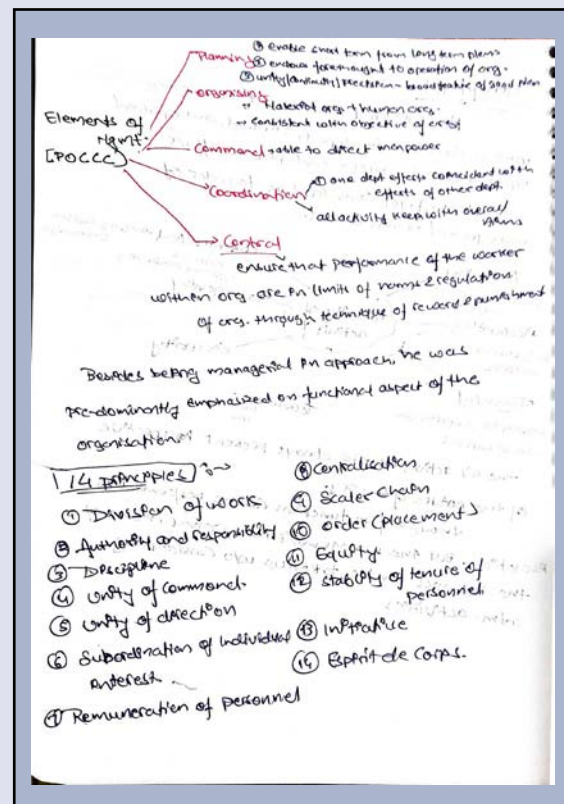 Planning
① enable short term from long term plans
② endows forethought to operation of org.
③ unity/continuity/precision - characteristic of good plan
Organising
→ Material org. + human org.
→ consistent with objective of org
Elements of
Mgmt.
[POCCC]
Command → able to direct manpower
Coordination
① one dept effects coincident with
effects of other dept.
all activity keep with overall
Control
ensure that performance of the worker
within org. are in limits of norms & regulation
of org. through technique of reward & punishment
Besides being managerial in approach, he was
pre-dominently emphasized on functional aspect of the
organisation
14 principles :~
① Division of work
② Authority and responsibility
③ Discipline
④ Unity of command.
⑤ Unity of direction
⑥ Subordination of individual
interest
⑦ Remuneration of personnel
⑧ Centralisation
⑨ Scaler Chain
⑩ Order (placement)
⑪ Equity
⑫ Stability of tenure of
personnel
⑬ Initiative
⑭ Esprit de Corps.